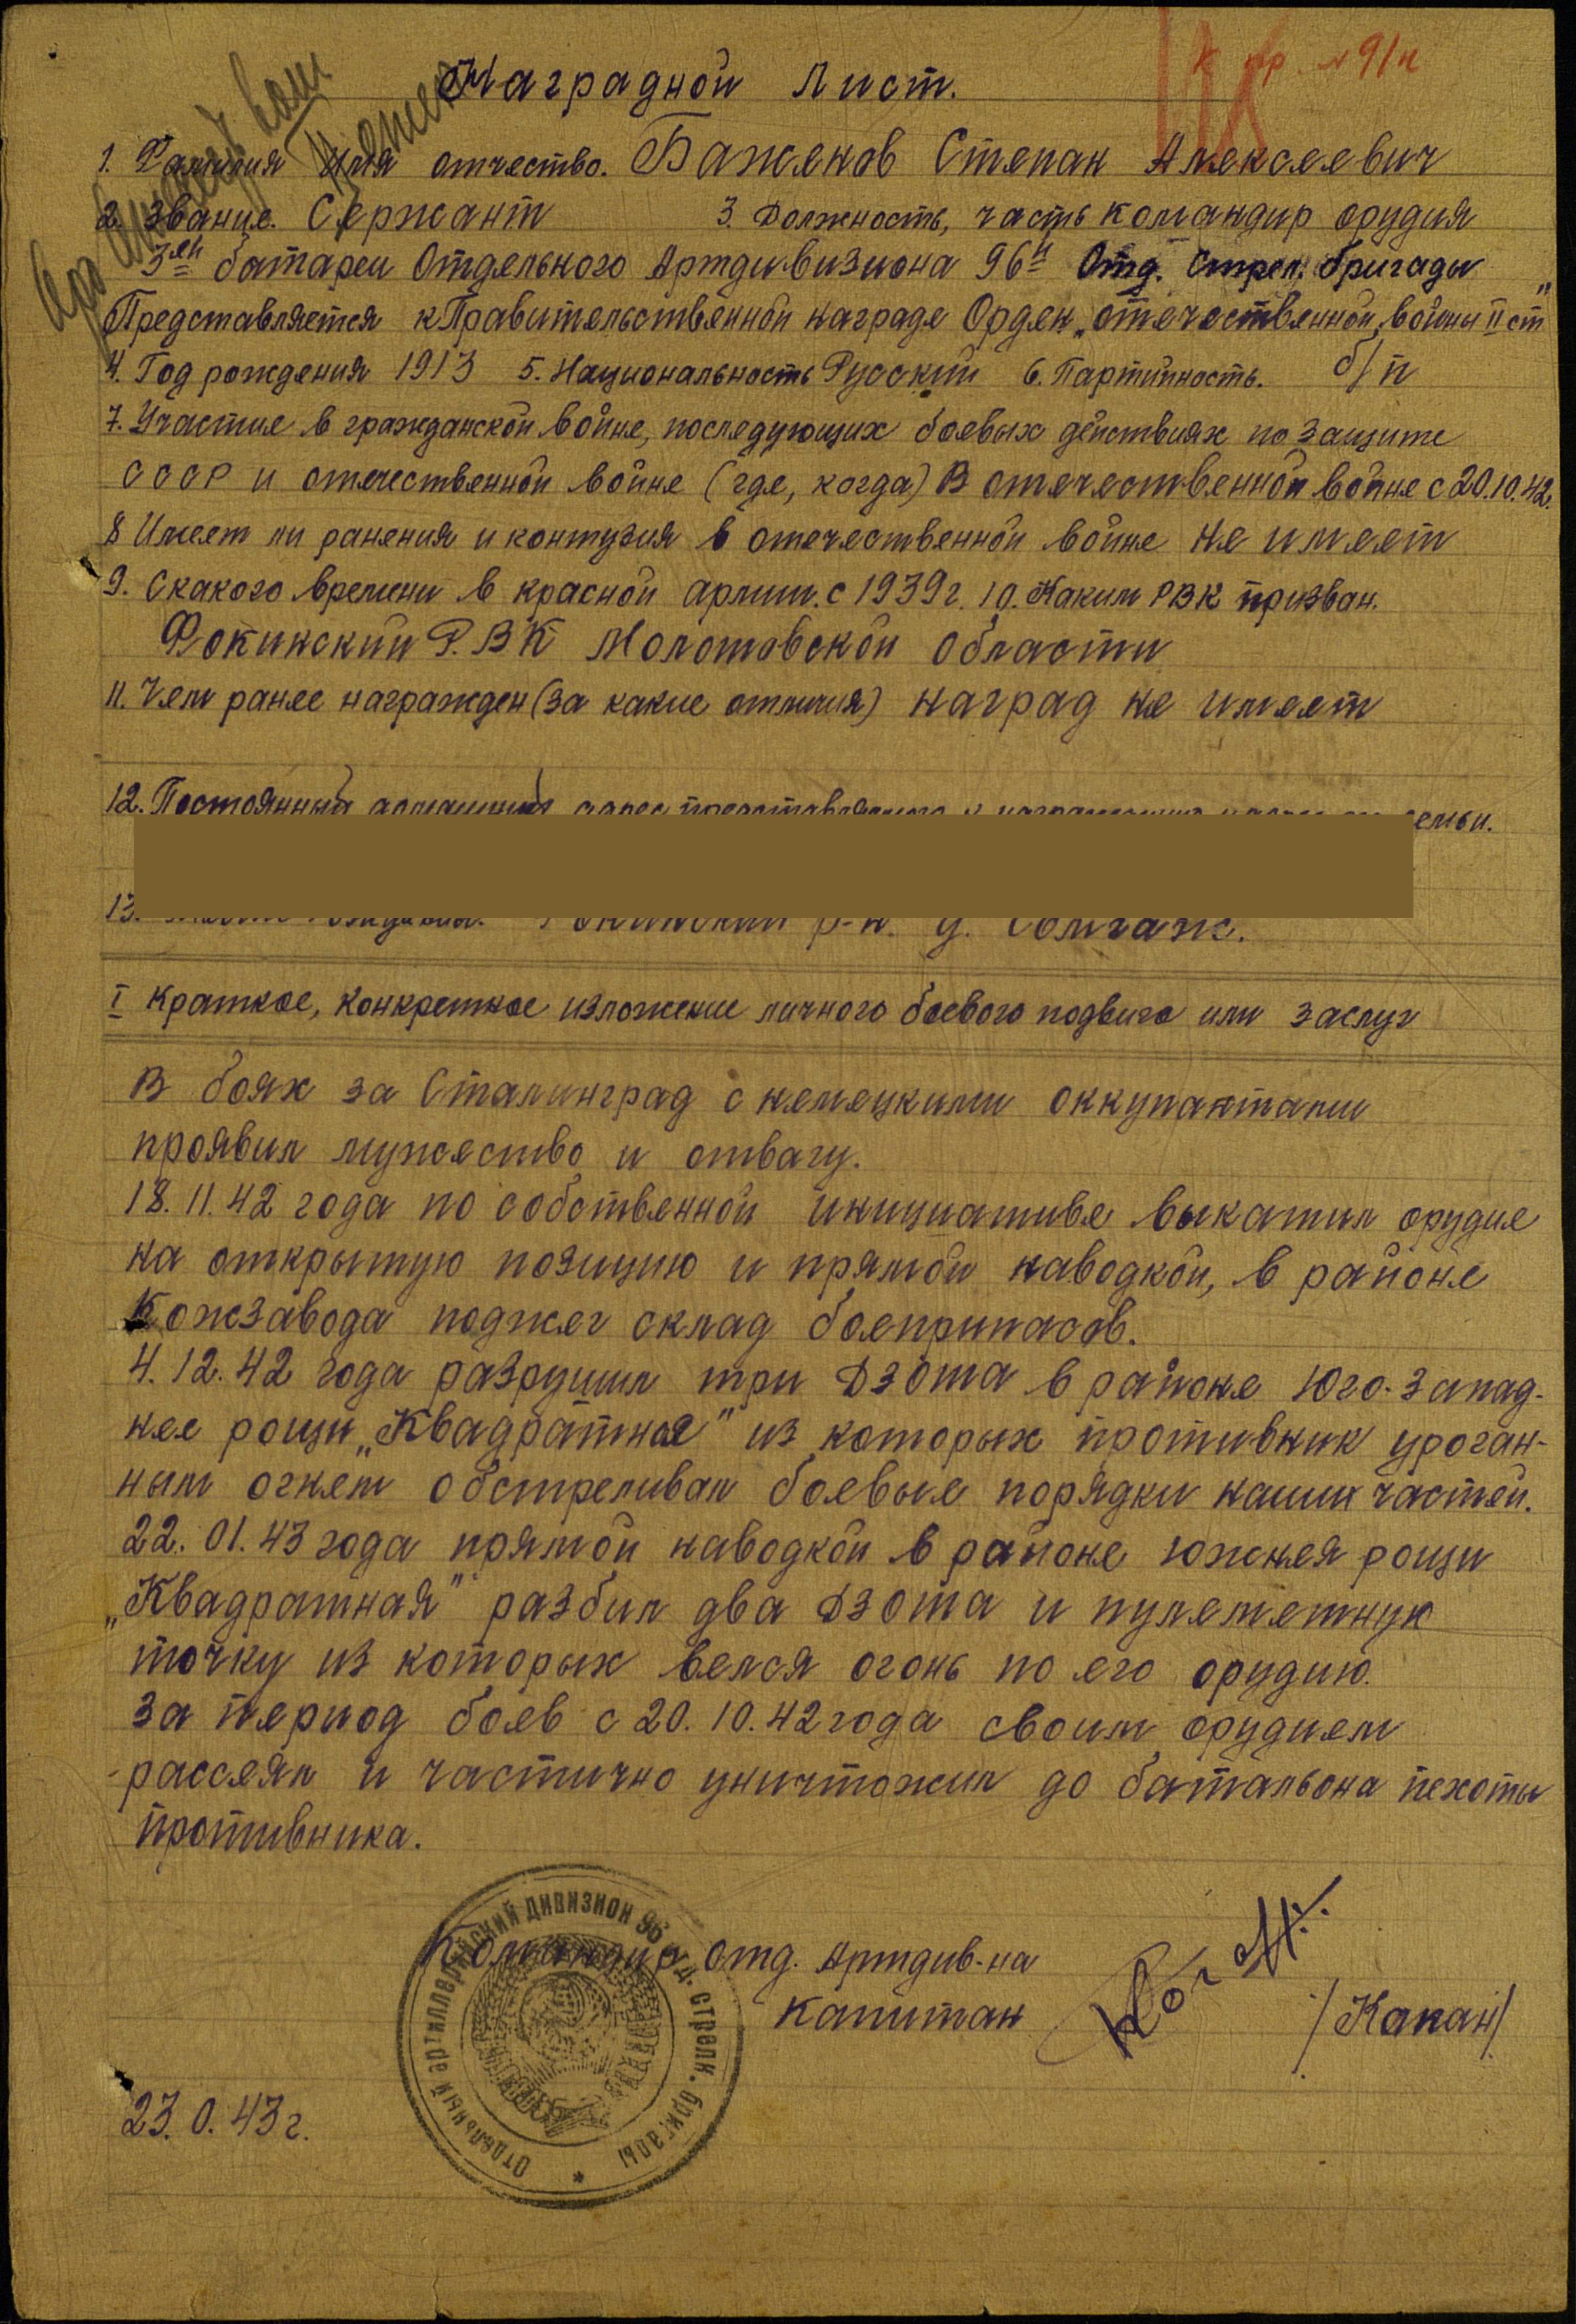 к пр. №91/н
Наградной Лист.
1. Фамилия Имя отчество. Баженов Степан Алексеевич
2. Звание. Сержант 3. Должность, часть командир орудия
3ей батареи Отдельного Артдивизиона 96й Отд. Стрел. бригады
Представляется к Правительственной награде Орден „Отечественной войны II ст"
4. Год рождения 1913 5. Национальность Русский 6. Партийность. б/п
7. Участие в гражданской войне, последующих боевых действиях по защите
СССР и отечественной войне (где, когда) В отечественной войне с 20.10.42.
8 Имеет ли ранения и контузия в отечественной войне не имеет
9. С какого времени в красной армии. с 1939г. 10. Каким РВК призван.
Фокинский Р.В.К Молотовской области
11. Чем ранее награжден (за какие отличия) наград не имеет
12. Постоянный домашний адрес представляемого к награждению и адрес его семьи.
13. р-н. д.
I Краткое, конкретное изложение личного боевого подвига или заслуг
В боях за Сталинград с немецкими оккупантами
проявил мужество и отвагу.
18.11.42 года по собственной инициативе выкатил орудие
на открытую позицию и прямой наводкой, в районе
Кожзавода поджег склад боеприпасов.
4.12.42 года разрушил три Дзота в районе Юго-запад-
нее рощи „Квадратная" из которых противник ураган-
ным огнем обстреливал боевые порядки наших частей.
22.01.43 года прямой наводкой в районе южнея рощи
„Квадратная" разбил два Дзота и пулеметную
точку из которых велся огонь по его орудию.
За период боев с 20.10.42 года своим орудием
рассеял и частично уничтожил до батальона пехоты
противника.
Командир отд. Артдив-на
капитан /Капан/
23.0.43г.
Отдельный артиллерийский дивизион 96 отд. стрелк. бригады